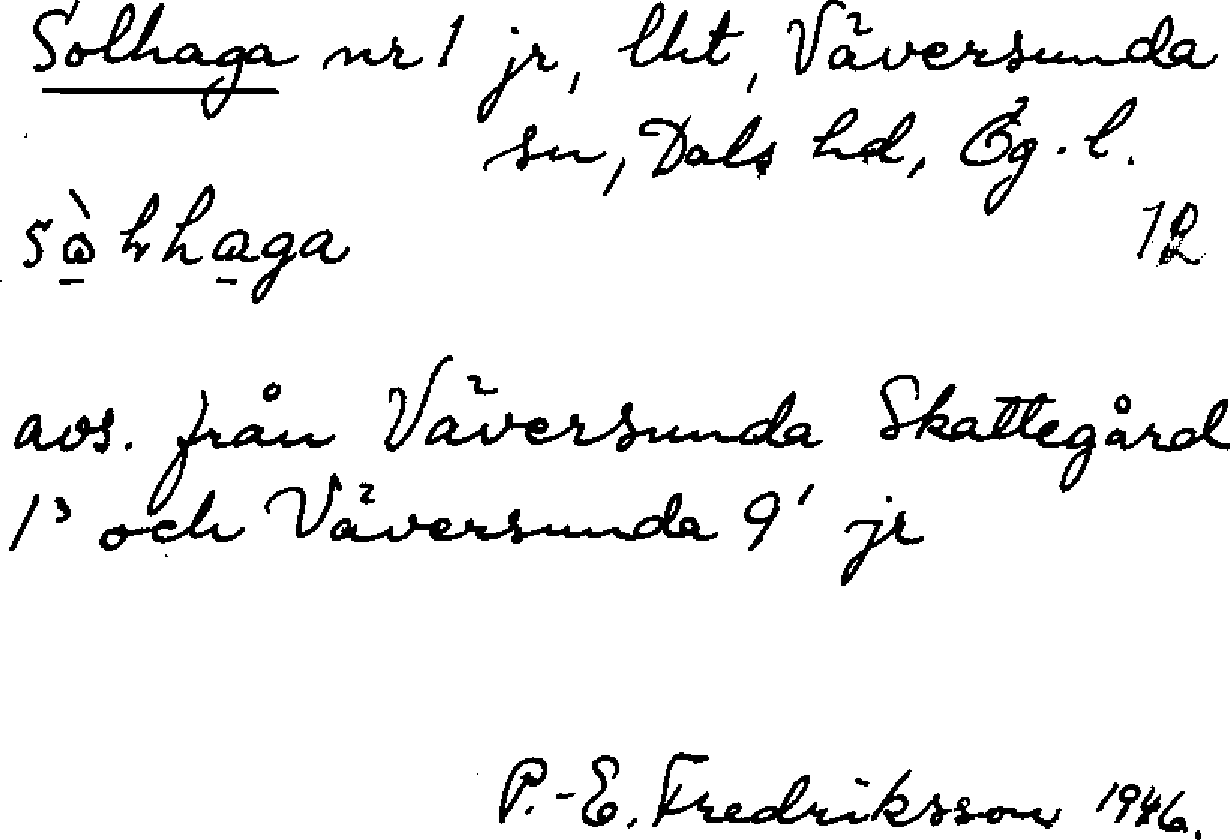 Solhaga nr 1 jr, lht, Väversunda
sn, Dals hd, Ög. l.
12
avs. från Väversunda Skattegård
1³ och Väversunda 9¹ jr
P.-E. Fredriksson 1946.